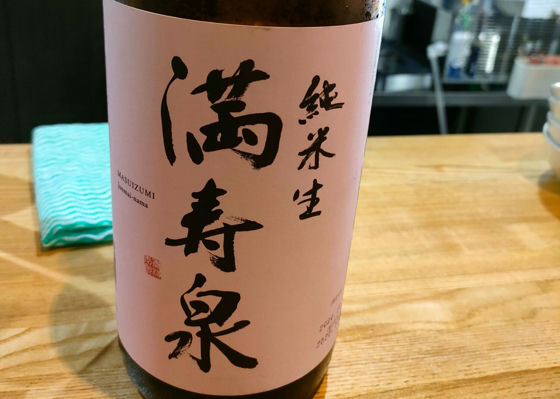 純米生
満寿泉
MASUIZUMI
Junmai-nama